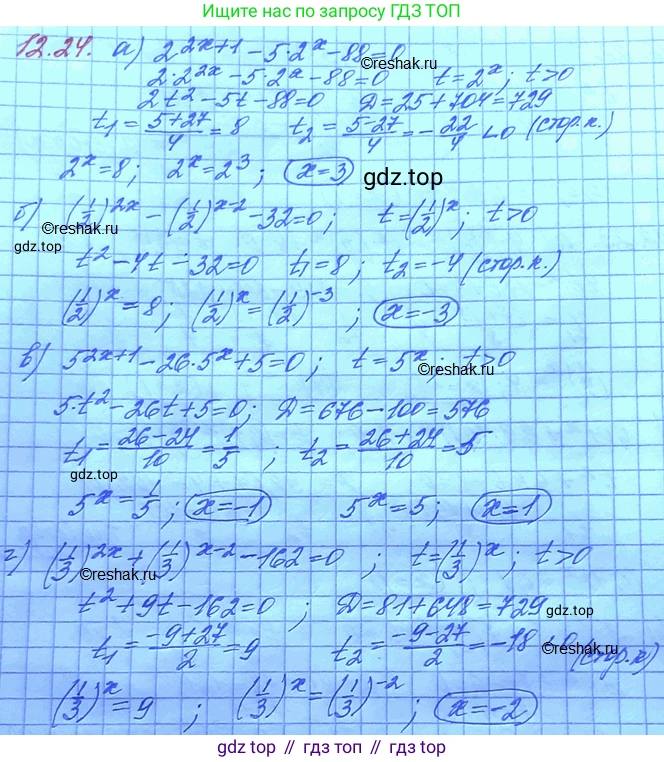 Ищите нас по запросу ГДЗ ТОП
12.24. а) 2^(2x+1) − 5·2^x − 88 = 0
2·2^(2x) − 5·2^x − 88 = 0 t = 2^x; t > 0
2t² − 5t − 88 = 0 D = 25 + 704 = 729
t₁ = (5+27)/4 = 8 t₂ = (5−27)/4 = −22/4 < 0 (стор.к.)
2^x = 8; 2^x = 2³; x = 3
gdz.top
б) (1/2)^(2x) − (1/2)^(x−2) − 32 = 0; t = (1/2)^x; t > 0
©reshak.ru ©reshak.ru
t² − 4t − 32 = 0 t₁ = 8 t₂ = −4 (стор.к.)
(1/2)^x = 8; (1/2)^x = (1/2)^(−3); x = −3
в) 5^(2x+1) − 26·5^x + 5 = 0; t = 5^x; t > 0
©reshak.ru
5·t² − 26t + 5 = 0; D = 676 − 100 = 576
t₁ = (26−24)/10 = 1/5; t₂ = (26+24)/10 = 5
©reshak.ru
5^x = 1/5; x = −1 5^x = 5; x = 1
©reshak.ru
г) (1/3)^(2x) + (1/3)^(x−2) − 162 = 0; t = (1/3)^x; t > 0
©reshak.ru
t² + 9t − 162 = 0; D = 81 + 648 = 729
t₁ = (−9+27)/2 = 9 t₂ = (−9−27)/2 = −18 < 0 (стор.к)
©reshak.ru
(1/3)^x = 9; (1/3)^x = (1/3)^(−2); x = −2
©reshak.ru
gdz.top // gdz.top // gdz.top